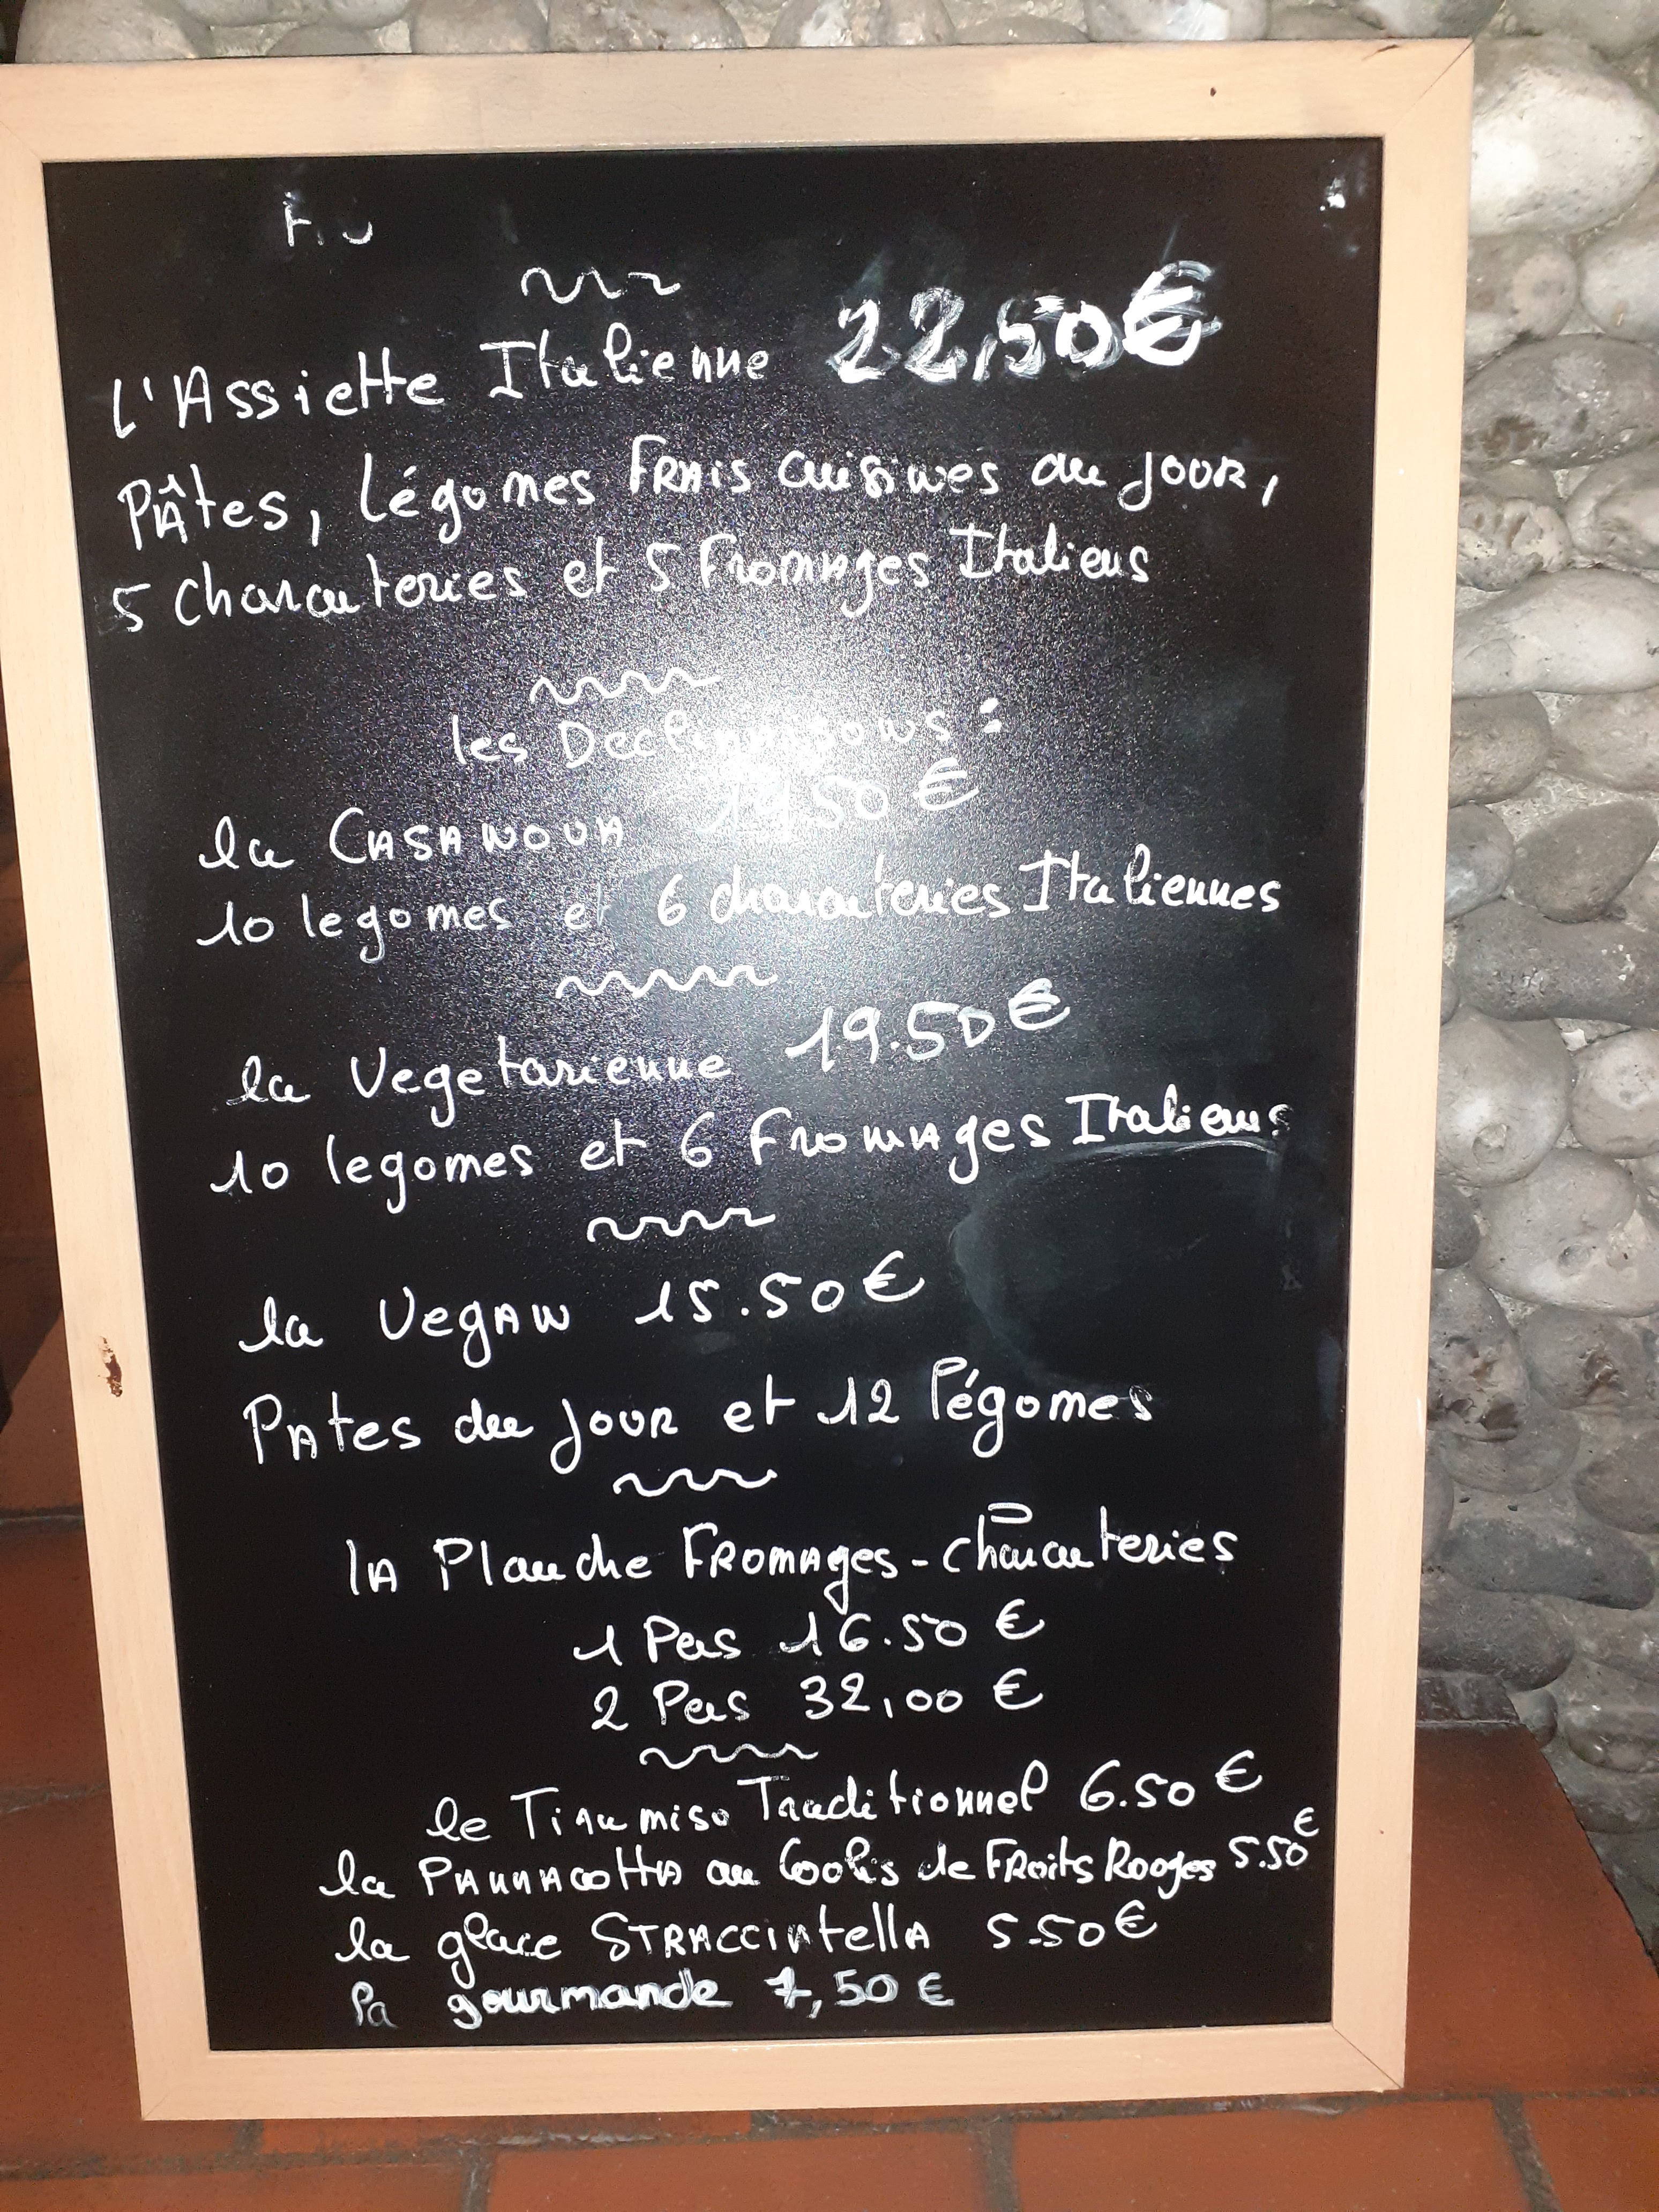 L'Assiette Italienne 22,50€
Pâtes, légumes Frais cuisines du jour,
5 charcuteries et 5 Fromages Italiens
les Declinaisons :
la CASANOVA 50 €
10 legumes et 6 charcuteries Italiennes
la Vegetarienne 19.50€
10 legumes et 6 Fromages Italiens
la VegAN 15.50€
PAtes du jour et 12 légumes
lA Planche FROMAges-charcuteries
1 Pers 16.50 €
2 Pers 32,00 €
le Tiramisu Traditionnel 6.50 €
la PANNACOttA au Coulis de FRuits Rouges 5.50€
la glace STRACCIAtellA 5.50€
la gourmande 7,50 €